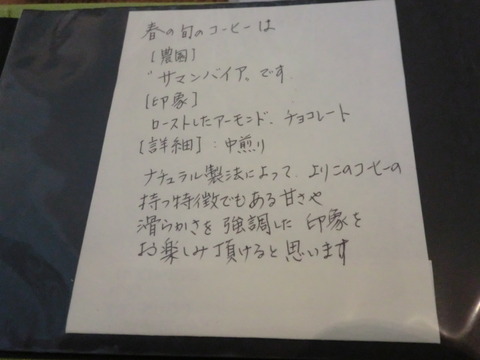 春の旬のコーヒーは
[農園]
"サマンバイア"です.
[印象]
ローストしたアーモンド、チョコレート
[詳細]:中煎り
ナチュラル製法によって、よりこのコーヒーの
持つ特徴でもある甘さや
滑らかさを強調した印象を
お楽しみ頂けると思います